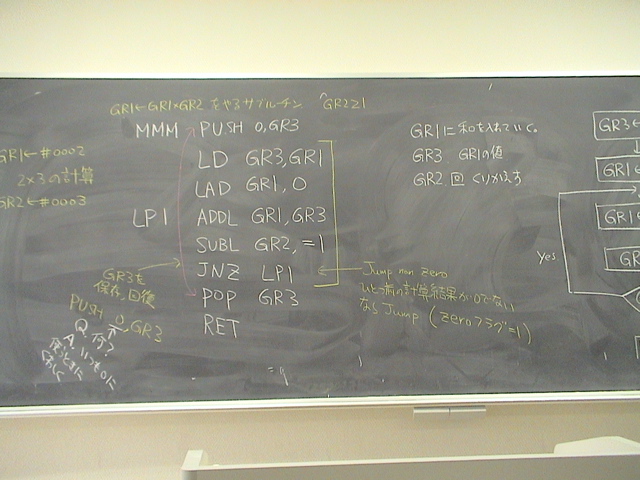 GR1←GR1×GR2 をやるサブルーチン GR2≧1
MMM PUSH 0,GR3
LD GR3,GR1
LAD GR1,0
LP1 ADDL GR1,GR3
SUBL GR2,=1
JNZ LP1
POP GR3
RET
GR1←#0002
2×3の計算
GR2←#0003
GR3を
保存,回復
PUSH 0,GR3
Q.何?
A.いつも0に
GR1に和を入れていく。
GR3 GR1の値
GR2 回 くりかえす
Jump non zero
ひとつ前の計算結果が0でない
なら Jump (zeroフラグ=1)
GR3←
GR1←
GR1←
GR
yes